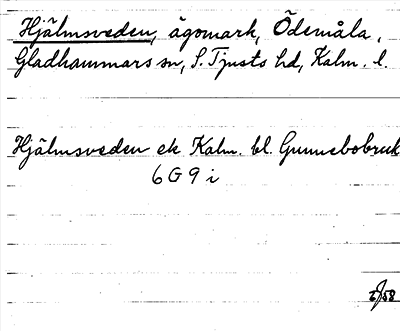 Hjälmsveden, ägomark, Ödemåla,
Gladhammars sn, S. Tjusts hd, Kalm. l.
Hjälmsveden ek Kalm. bl. Gunnebobruk
6 G 9 i